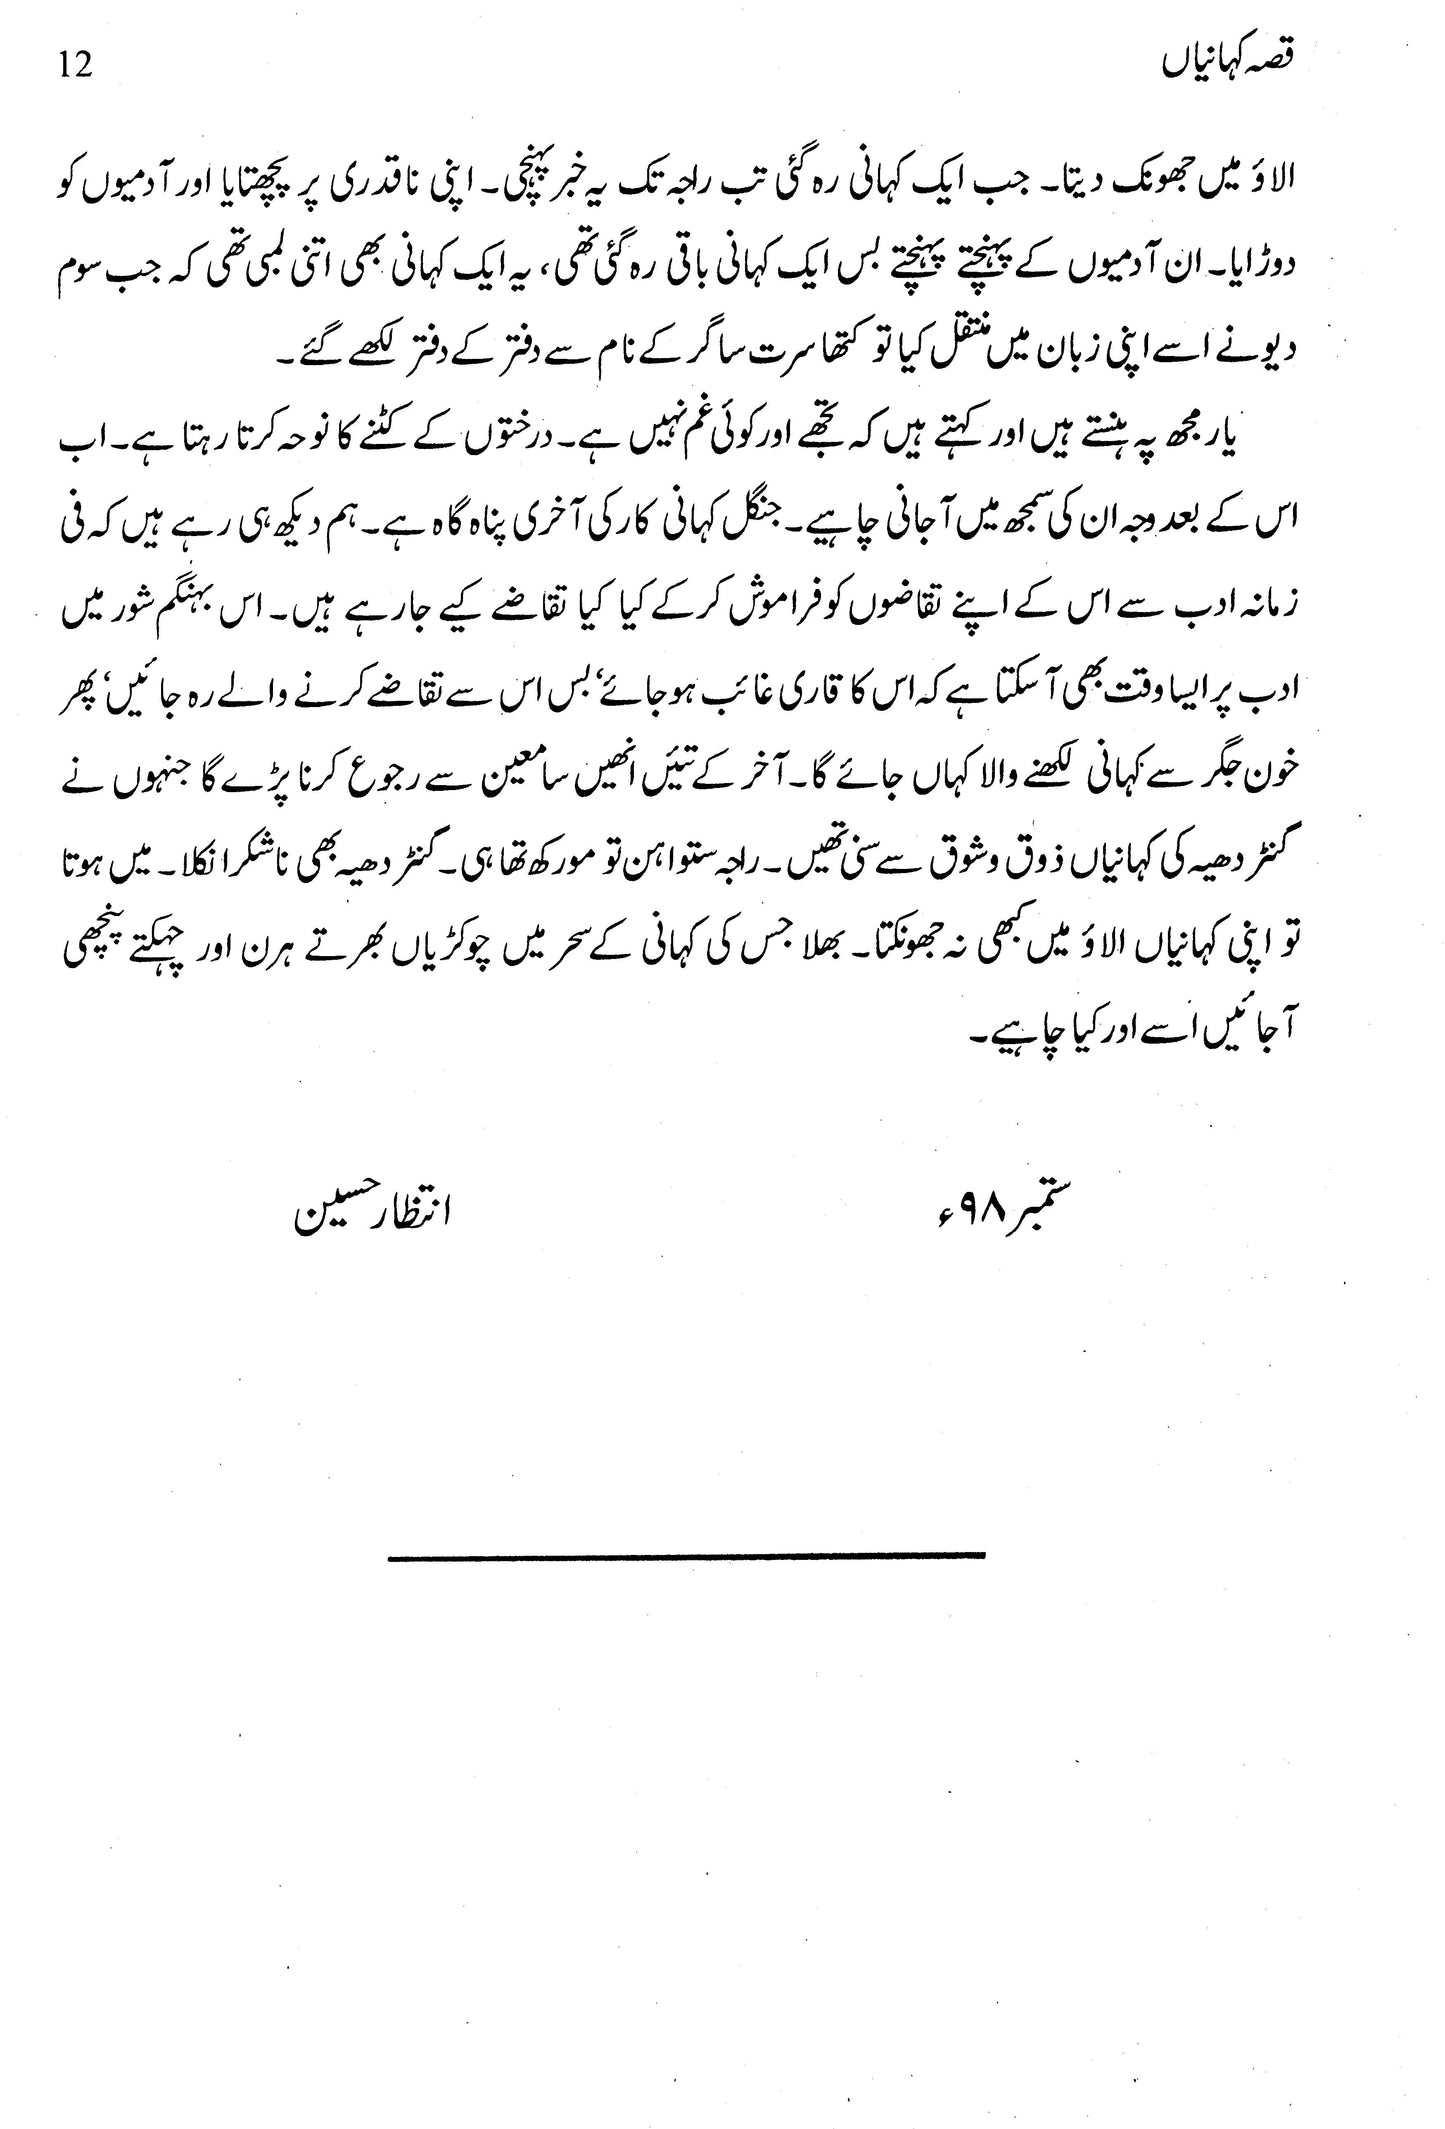 قصہ کہانیاں 12
الاؤ میں جھونک دیتا۔ جب ایک کہانی رہ گئی تب راجہ تک یہ خبر پہنچی۔ اپنی ناقدری پر پچھتایا اور آدمیوں کو
دوڑایا۔ ان آدمیوں کے پہنچتے پہنچتے بس ایک کہانی باقی رہ گئی تھی، یہ ایک کہانی بھی اتنی لمبی تھی کہ جب سوم
دیو نے اسے اپنی زبان میں منتقل کیا تو کتھا سرت ساگر کے نام سے دفتر کے دفتر لکھے گئے۔
یار مجھ پہ ہنستے ہیں اور کہتے ہیں کہ تجھے اور کوئی غم نہیں ہے۔ درختوں کے کٹنے کا نوحہ کرتا رہتا ہے۔ اب
اس کے بعد وجہ ان کی سمجھ میں آجانی چاہیے۔ جنگل کہانی کار کی آخری پناہ گاہ ہے۔ ہم دیکھ ہی رہے ہیں کہ فی
زمانہ ادب سے اس کے اپنے تقاضوں کو فراموش کر کے کیا کیا تقاضے کیے جارہے ہیں۔ اس بہنگم شور میں
ادب پر ایسا وقت بھی آسکتا ہے کہ اس کا قاری غائب ہوجائے‘ بس اس سے تقاضے کرنے والے رہ جائیں‘ پھر
خون جگر سے کہانی لکھنے والا کہاں جائے گا۔ آخر کے تئیں انھیں سامعین سے رجوع کرنا پڑے گا جنہوں نے
گنٹر دھیہ کی کہانیاں ذوق و شوق سے سنی تھیں۔ راجہ ستواہن تو مورکھ تھا ہی۔ گنٹر دھیہ بھی ناشکرا نکلا۔ میں ہوتا
تو اپنی کہانیاں الاؤ میں کبھی نہ جھونکتا۔ بھلا جس کی کہانی کے سحر میں چوکڑیاں بھرتے ہرن اور چہکتے پنچھی
آجائیں اسے اور کیا چاہیے۔
ستمبر ۹۸ء انتظار حسین